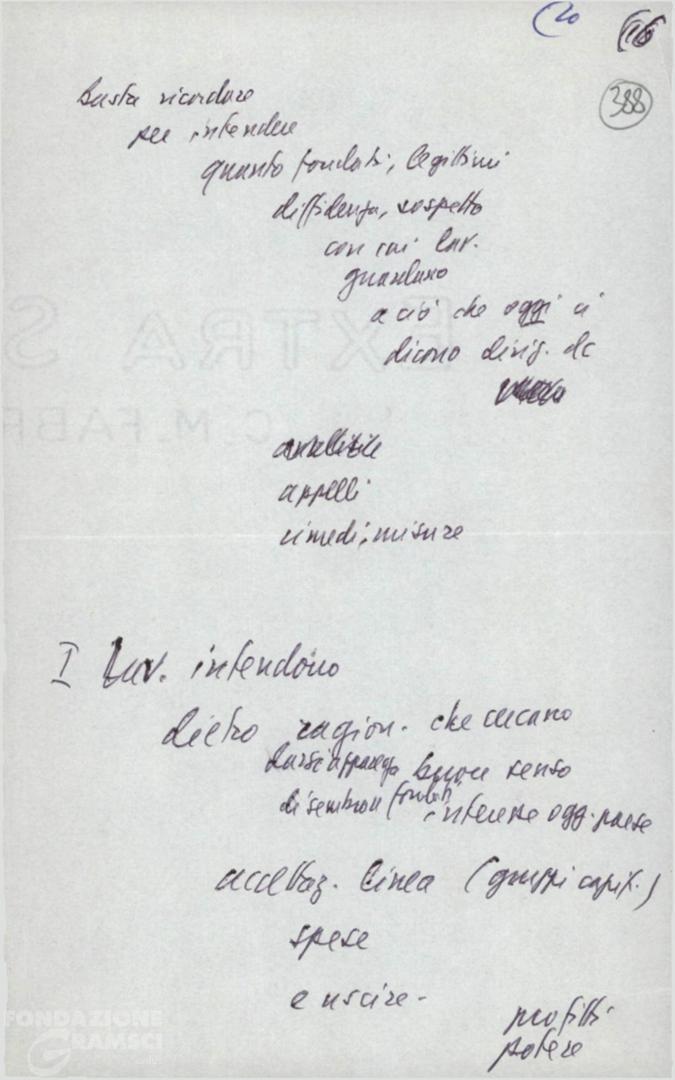 20
16
388
basta ricordare
per intendere
quanto fondati, legittimi
diffidenza, sospetto
con cui lav.
guardano
a ciò che oggi ci
dicono dirig. dc
appelli
rimedi, misure
I lav. intendono
dietro ragion. che cercano
darsi apparenza buon senso
di sembrare fondati interesse oggi paese
accettaz. linea (gruppi capit.)
spese
e uscire -
profitti
potere
EXTRA S
C. M. FABR
FONDAZIONE
GRAMSCI